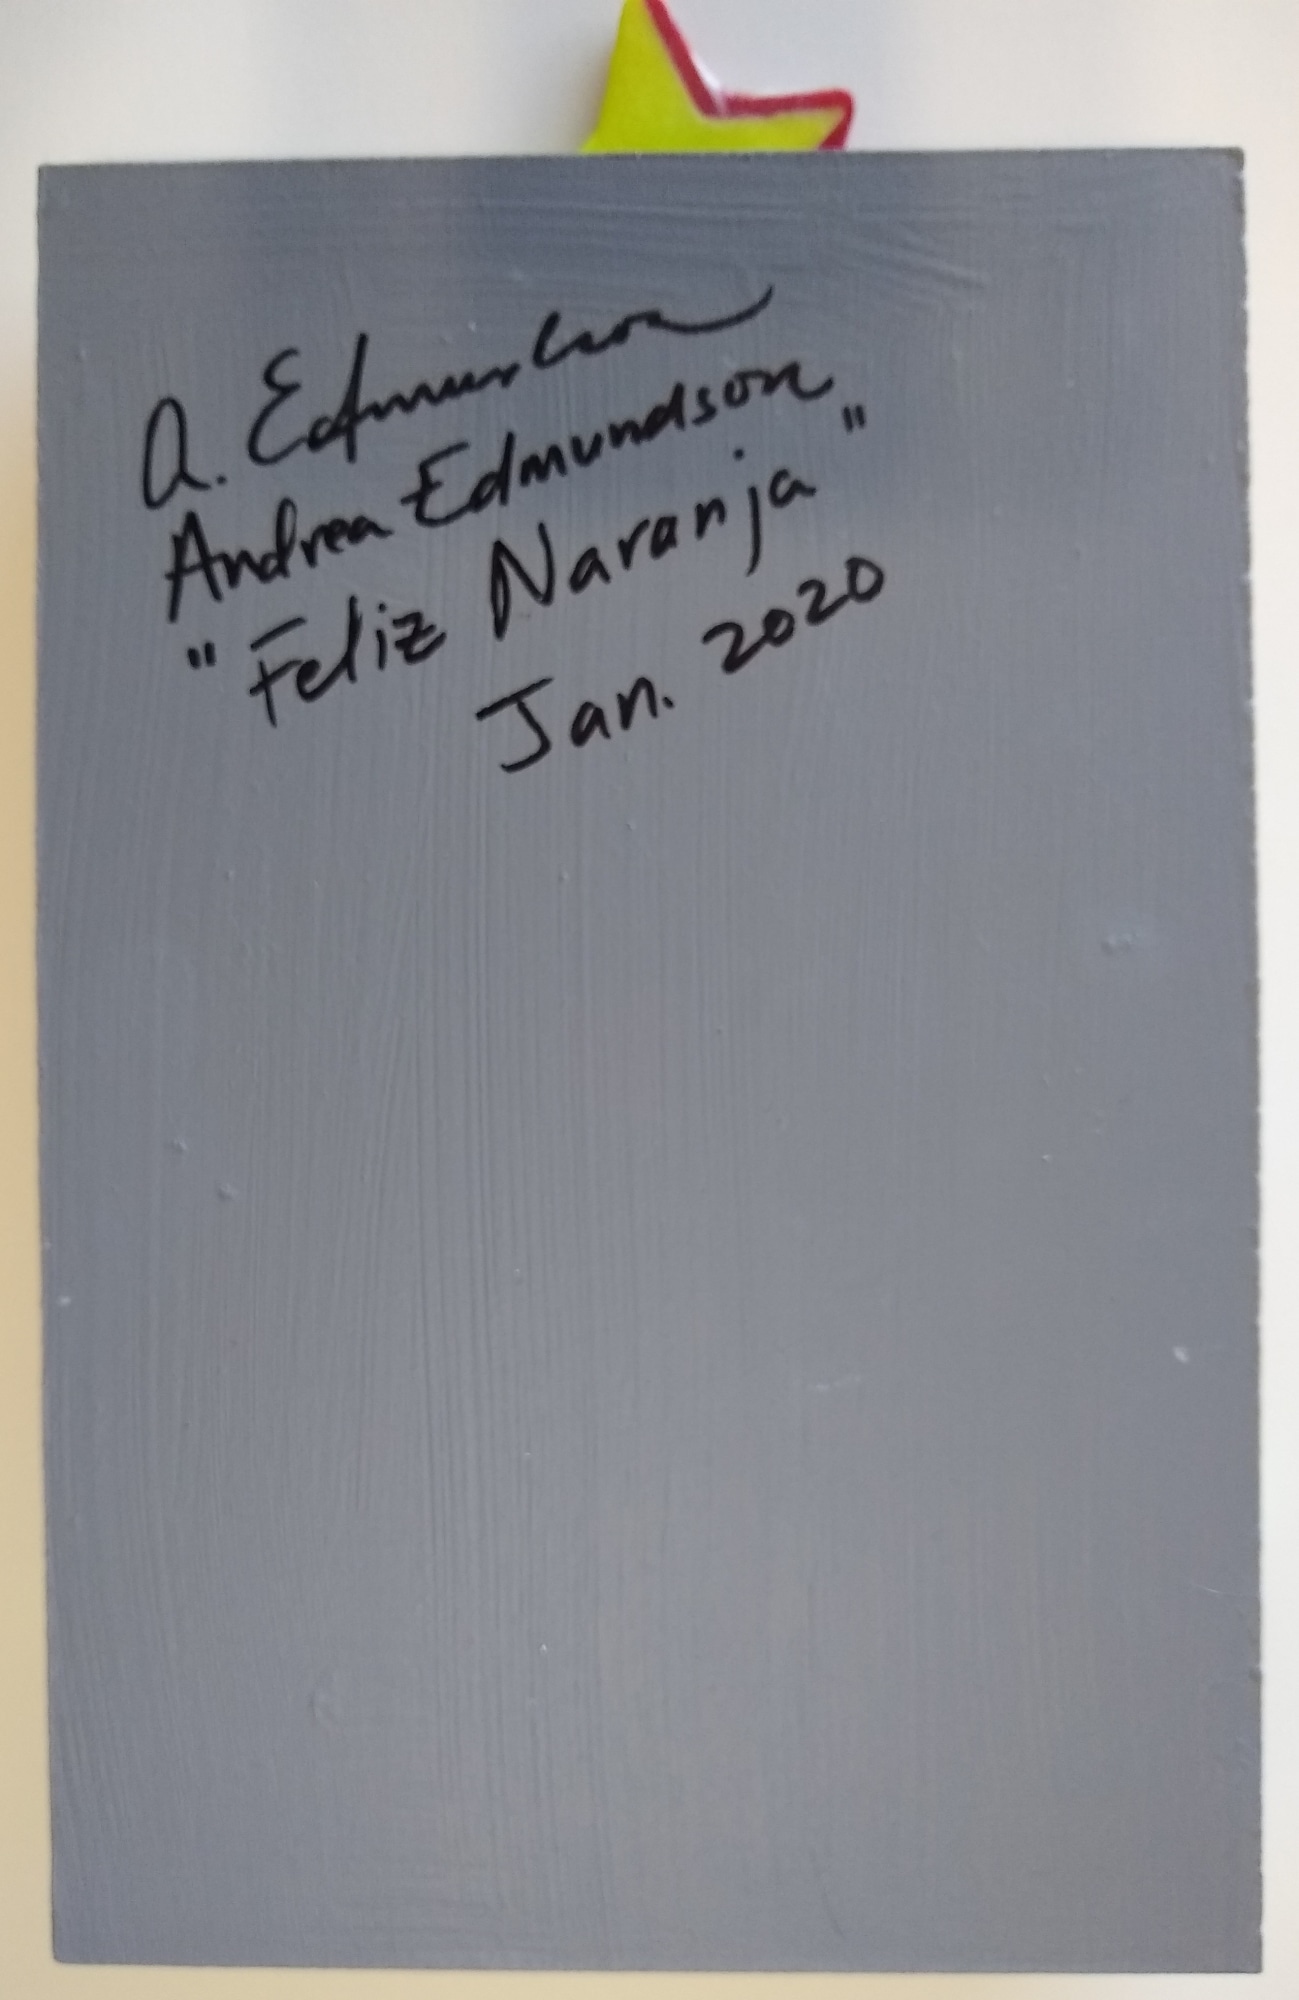 A. Edmundson
Andrea Edmundson
"Feliz Naranja"
Jan. 2020